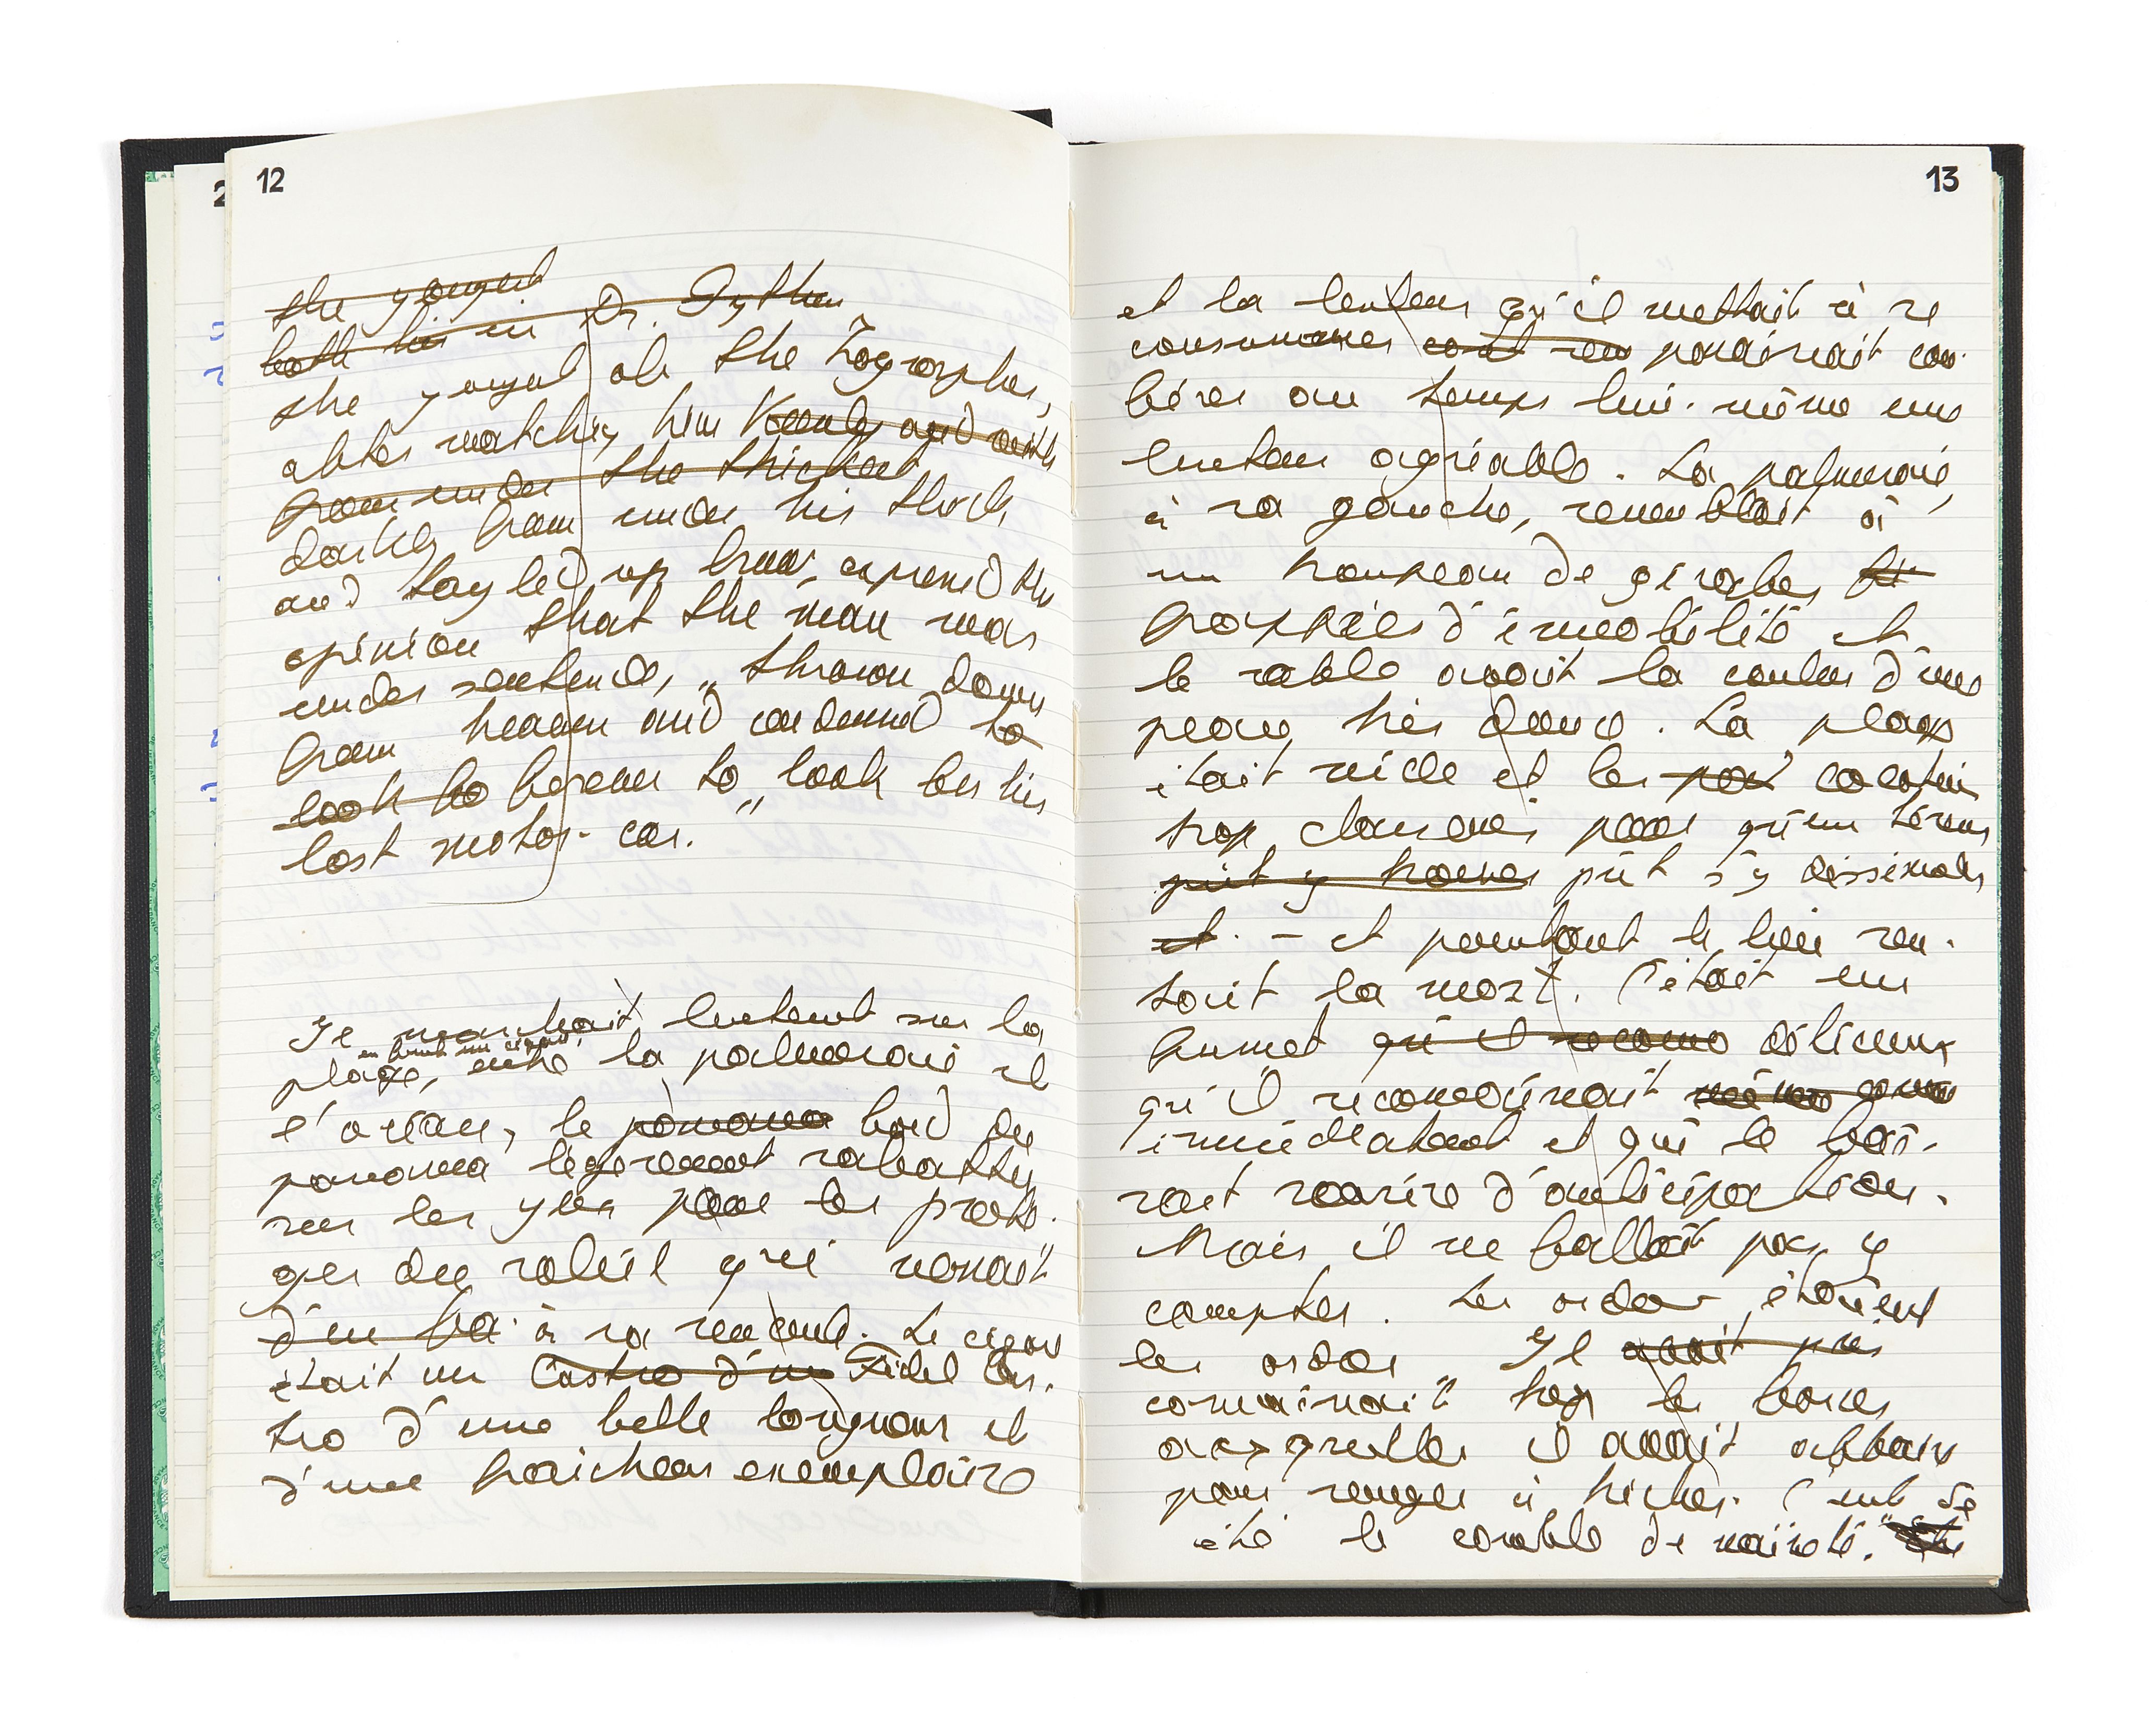 12
the youngest
both his in Dr. Gython
the youngest of the Zographos,
after watching him keenly and with
from under the thickest
darkly from under his thick
and tangled up brow, expressed the
opinion that the man was
under sentence, "thrown down
from heaven and condemned to
look for forever to look for his
lost motor-car."
Il marchait lentement sur la
en fumant un cigare,
plage, entre la palmeraie et
l'océan, le panama bord du
panama légèrement rabattu
sur les yeux pour les proté-
ger du soleil qui venait
d'en fa à sa rencontre. Le cigare
était un Castro d'un Fidel Cas-
tro d'une belle longueur et
d'une fraîcheur exemplaire
13
et la lenteur qu'il mettait à se
consumer paraissait con-
férer au temps lui-même une
lenteur agréable. La palmeraie,
à sa gauche, ressemblait à
un troupeau de girafes
frappées d'immobilité et
le sable avait la couleur d'une
peau très douce. La plage
était vide et les cocotiers
trop clairsemés pour qu'un tireur
put y trouver pût s'y dissimuler
et - et pourtant le lieu sen-
tait la mort. C'était un
fumet qu'il reconna délicieux
qu'il reconnaissait même comme
immédiatement et qui le fai-
sait sourire d'anticipation.
Mais il ne fallait pas y
compter. Les ordres étaient
les ordres. Il avait pris
connaissait trop les forces
auxquelles il avait affaire
pour songer à tricher. C'eut
été le comble de naïveté.